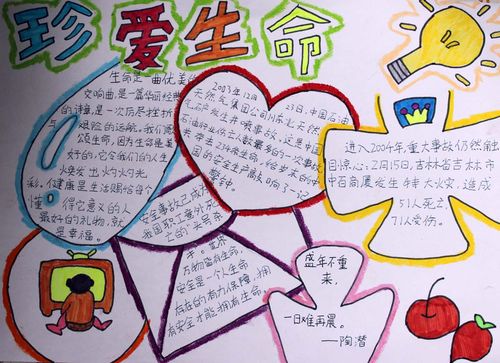 珍爱生命
生命是一曲优美的
交响曲,是一篇华丽经典
的诗章,是一次历尽挫折
与艰险的远航,我们歌
颂生命,因为生命是美
好的,它令我们的人生
焕发出灼灼光
彩。健康是生活赐给每个
懂得它意义的人
最好的礼物,就
是幸福。
2003年12月23日,中国石油
天然气集团公司川东北天然
气矿发生井喷事故,这是中国
石油
气井伤亡人数最多的一次事故
共夺走
234条生命,给岁末的中
国的安全生产敲响了一记
警钟。
进入2004年,重大事故仍然触
目惊心,2月15日,吉林省吉林市
中百商厦发生特大火灾,造成
51人死亡,
71人受伤。
安全事故已成为
我国职工意外死
亡的“头号杀
手”。世界
万物皆有生命,
安全是一个人生命
存在的有力保障,拥
有安全才能拥有生命
盛年不重
来,
一日难再晨。
——陶潜